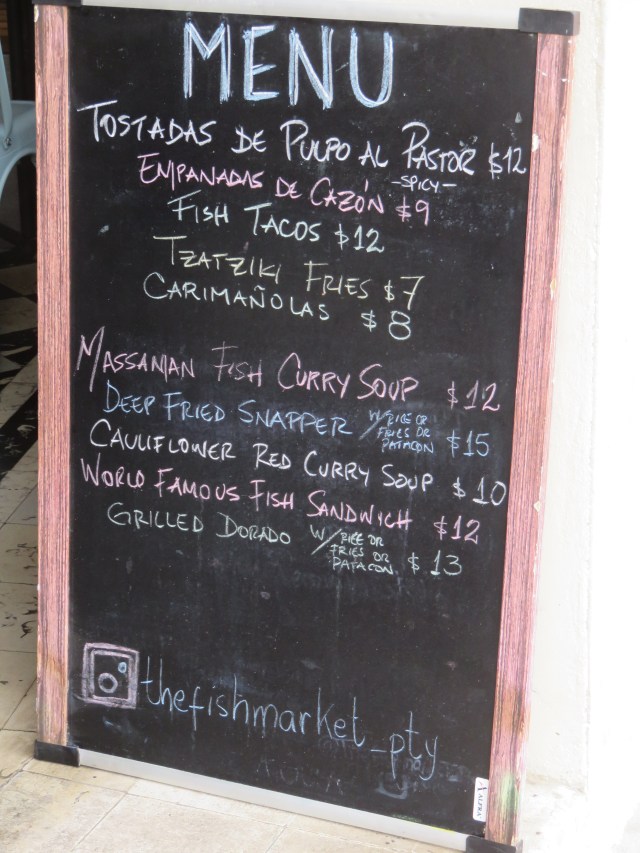 MENU
TOSTADAS DE PULPO AL PASTOR $12
-SPICY-
EMPANADAS DE CAZÓN $9
FISH TACOS $12
TZATZIKI FRIES $7
CARIMAÑOLAS $8
MASSAMAN FISH CURRY SOUP $12
DEEP FRIED SNAPPER W/RICE OR FRIES OR PATACON $15
CAULIFLOWER RED CURRY SOUP $10
WORLD FAMOUS FISH SANDWICH $12
GRILLED DORADO W/RICE OR FRIES OR PATACON $13
thefishmarket_pty